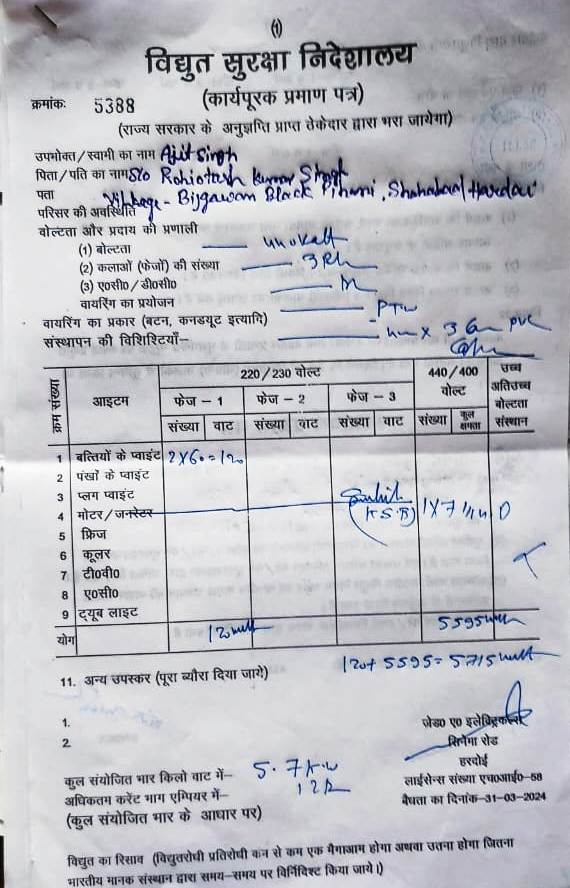 (1)
विद्युत सुरक्षा निदेशालय
क्रमांकः 5388 (कार्यपूरक प्रमाण पत्र)
(राज्य सरकार के अनुज्ञप्ति प्राप्त ठेकेदार द्वारा भरा जायेगा)
उपभोक्त / स्वामी का नाम Ajit Singh
पिता / पति का नाम S/o Rohiotash Kumar Singh
पता Village - Bijgawan Block Pihani, Shahabad Hardoi
परिसर की अवस्थिति
वोल्टता और प्रदाय की प्रणाली
(1) वोल्टता
(2) कलाओं (फेजों) की संख्या 3 Ph
(3) ए०सी० / डी०सी०
वायरिंग का प्रयोजन PTW
वायरिंग का प्रकार (बटन, कनडयूट इत्यादि)
संस्थापन की विशिष्टियाँ– X 3 PVC
क्रम संख्या आइटम 220 / 230 वोल्ट 440 / 400 वोल्ट उच्च अतिउच्च वोल्टता संस्थान
फेज – 1 फेज – 2 फेज – 3
संख्या वाट संख्या वाट संख्या वाट संख्या कुल क्षमता
1 बत्तियों के प्वाइंट 2X60=120
2 पंखों के प्वाइंट
3 प्लग प्वाइंट
4 मोटर / जनरेटर (KSB) 1X7
5 फ्रिज
6 कूलर
7 टी०वी०
8 ए०सी०
9 ट्यूब लाइट
योग 120 watt 5595 watt
120+ 5595= 5715 watt
11. अन्य उपस्कर (पूरा ब्यौरा दिया जागे)
1.
2.
जेड० ए० इलेक्ट्रिकल्स
सिनेमा रोड
हरदोई
कुल संयोजित भार किलो वाट में– 5.7 K.W लाईसेन्स संख्या एच०आई०-58
अधिकतम करेंट भाग एम्पियर में– 12A वैधता का दिनांक-31-03-2024
(कुल संयोजित भार के आधार पर)
विद्युत का रिसाव (विद्युतरोधी प्रतिरोधी कन से कम एक मैगाआम होगा अथवा उतना होगा जितना
भारतीय मानक संस्थान द्वारा समय-समय पर विर्निदिष्ट किया जाये।)